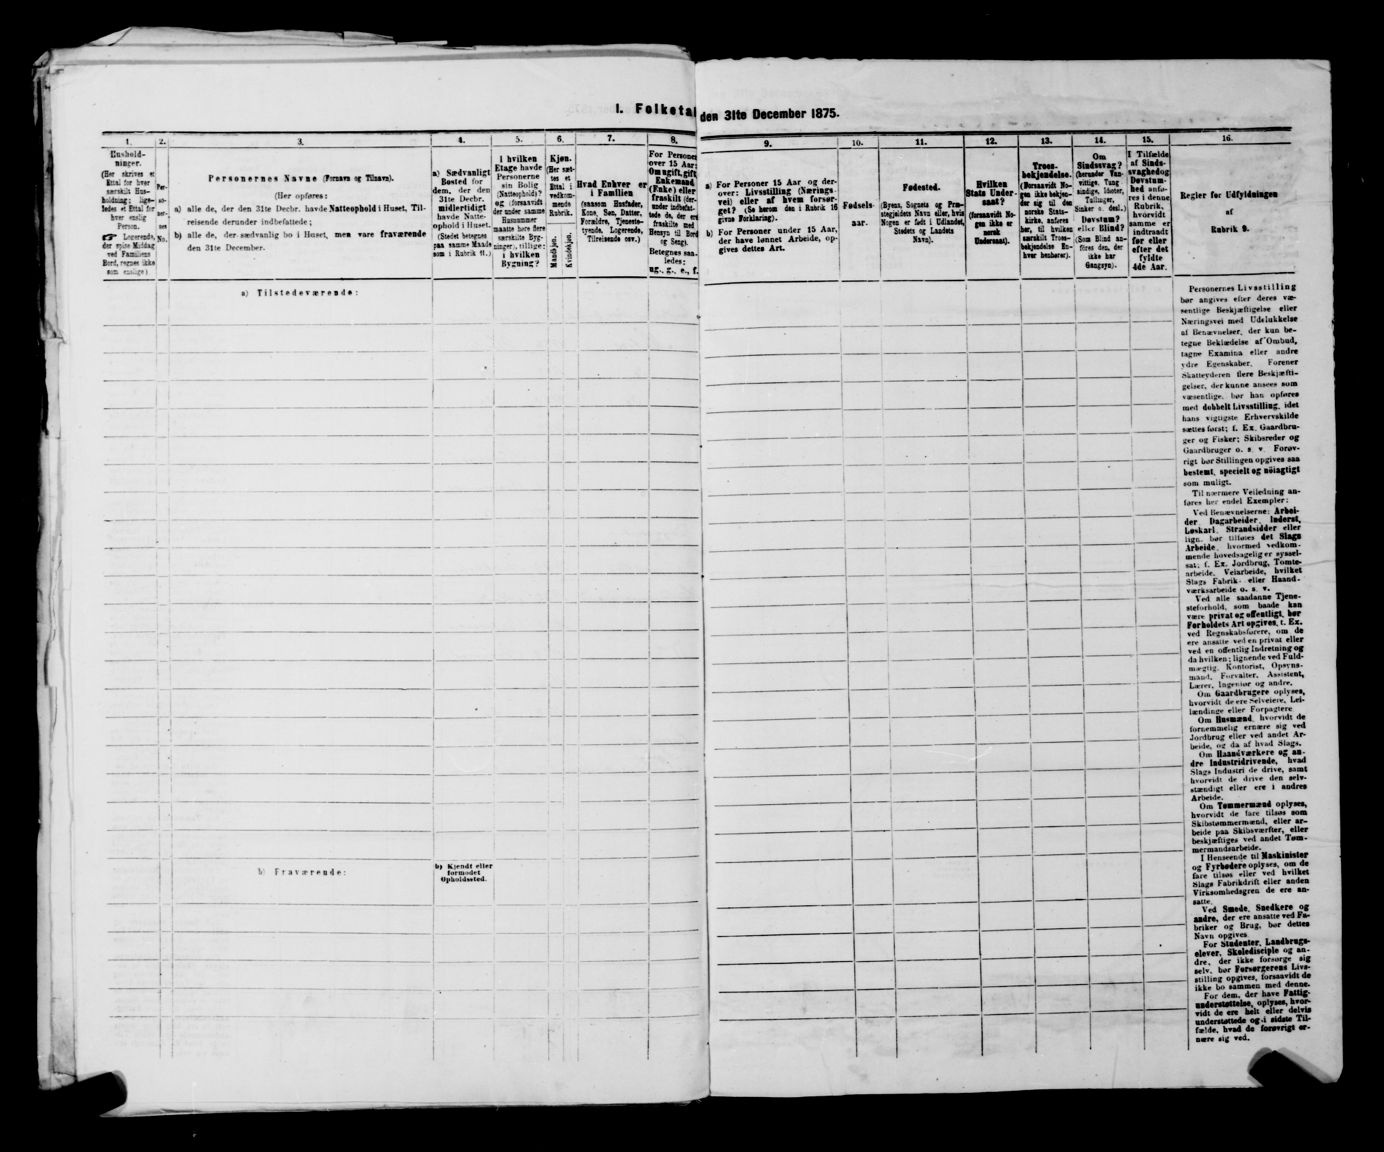 I. Folketal den 31te December 1875.
1.
Hushold-
ninger.
(Her skrives et
Ettal for hver
særskilt Hus-
holdning; lige-
ledes et Ettal for
hver enslig
Person.
☞ Logerende,
der spise Middag
ved Familiens
Bord, regnes ikke
som enslige).
2.
Per-
so-
ner-
nes
No.
3.
Personernes Navne (Fornavn og Tilnavn).
(Her opføres:
a) alle de, der den 31te Decbr. havde Natteophold i Huset, Til-
reisende derunder indbefattede;
b) alle de, der sædvanlig bo i Huset, men vare fraværende
den 31te December.
4.
a) Sædvanligt
Bosted for
dem, der den
31te Decbr.
midlertidigt
havde Natte-
ophold i Huset.
(Stedet betegnes
paa samme Maade
som i Rubrik 11.)
5.
I hvilken
Etage havde
Personerne
sin Bolig
(Natteophold)?
og (forsaavidt
der under samme
Husnummer
maatte høre flere
særskilte Byg-
ninger), tillige:
i hvilken
Bygning?
6.
Kjøn.
(Her sæt-
tes et
Ettal i
vedkom-
mende
Rubrik.
Mandkjøn.
Kvindekjøn.
7.
Hvad Enhver er
i Familien
(saasom Husfader,
Kone, Søn, Datter,
Forældre, Tjeneste-
tyende, Logerende,
Tilreisende osv.)
8.
For Personer
over 15 Aar:
Om ugift, gift,
Enkemand
(Enke) eller
fraskilt (der-
under indbefat-
tede de, der ere
fraskilte med
Hensyn til Bord
og Seng).
Betegnes saa-
ledes:
ug., g., e., f.
9.
a) For Personer 15 Aar og der-
over: Livsstilling (Nærings-
vei) eller af hvem forsør-
get? (Se herom den i Rubrik 16
givne Forklaring).
b) For Personer under 15 Aar,
der have lønnet Arbeide, op-
gives dettes Art.
10.
Fødsels-
aar.
11.
Fødested.
(Byens, Sognets og Præ-
stegjeldets Navn eller, hvis
Nogen er født i Udlandet,
Stedets og Landets
Navn).
12.
Hvilken
Stats Under-
saat?
(forsaavidt No-
gen ikke er
norsk
Undersaat).
13.
Troes-
bekjendelse.
(Forsaavidt No-
gen ikke bekjen-
der sig til den
norske Stats-
kirke, anføres
her, til hvilken
særskilt Troes-
bekjendelse En-
hver henhører).
14.
Om
Sindssvag?
(herunder Van-
vittige, Tung-
sindige, Idioter,
Tullinger,
Sinker o. desl.)
Døvstum?
eller Blind?
(Som Blind an-
føres den, der
ikke har
Gangsyn).
15.
I Tilfælde
af Sinds-
svaghed og
Døvstum-
hed anfø-
res i denne
Rubrik,
hvorvidt
samme er
indtraadt
før eller
efter det
fyldte
4de Aar.
16.
Regler for Udfyldningen
af
Rubrik 9.
a) Tilstedeværende:
b) Fraværende:
b) Kjendt eller
formodet
Opholdssted.
Personernes Livsstilling
bør angives efter deres væ-
sentlige Beskjæftigelse eller
Næringsvei med Udelukkelse
af Benævnelser, der kun be-
tegne Beklædelse af Ombud,
tagne Examina eller andre
ydre Egenskaber. Forener
Skatteyderen flere Beskjæfti-
gelser, der kunne ansees som
væsentlige, bør han opføres
med dobbelt Livsstilling, idet
hans vigtigste Erhvervskilde
sættes først; f. Ex. Gaardbru-
ger og Fisker; Skibsreder og
Gaardbruger o. s. v. Forøv-
rigt bør Stillingen opgives saa
bestemt, specielt og nöiagtigt
som muligt.
Til nærmere Veiledning an-
føres her endel Exempler:
Ved Benævnelserne: Arbei-
der, Dagarbeider, Inderst,
Løskarl, Strandsidder eller
lign. bør tilføies det Slags
Arbeide, hvormed vedkom-
mende hovedsagelig er syssel-
sat; f. Ex. Jordbrug, Tomte-
arbeide, Veiarbeide, hvilket
Slags Fabrik- eller Haand-
værksarbeide o. s. v.
Ved alle saadanne Tjene-
steforhold, som baade kan
være privat og offentligt, bør
Forholdets Art opgives, t. Ex.
ved Regnskabsførere, om de
ere ansatte ved en privat eller
ved en offentlig Indretning og
da hvilken; lignende ved Fuld-
mægtig, Kontorist, Opsyns-
mand, Forvalter, Assistent,
Lærer, Ingeniør og andre.
Om Gaardbrugere oplyses,
hvorvidt de ere Selveiere, Lei-
lændinge eller Forpagtere.
Om Husmænd, hvorvidt de
fornemmelig ernære sig ved
Jordbrug eller ved andet Ar-
beide, og da af hvad Slags.
Om Haandværkere og an-
dre Industridrivende, hvad
Slags Industri de drive, samt
hvorvidt de drive den selv-
stændigt eller ere i andres
Arbeide.
Om Tømmermænd oplyses,
hvorvidt de fare tilsøs som
Skibstømmermænd, eller ar-
beide paa Skibsværfter, eller
beskjæftiges ved andet Tøm-
mermandsarbeide.
I Henseende til Maskinister
og Fyrbødere oplyses, om de
fare tilsøs eller ved hvilket
Slags Fabrikdrift eller anden
Virksomhedsgren de ere an-
satte.
Ved Smede, Snedkere og
andre, der ere ansatte ved Fa-
briker og Brug, bør dettes
Navn opgives.
For Studenter, Landbrugs-
elever, Skoledisciple og an-
dre, der ikke forsørge sig
selv, bør Forsørgerens Livs-
stilling opgives, forsaavidt de
ikke bo sammen med denne.
For dem, der have Fattig-
understøttelse, oplyses, hvor-
vidt de ere helt eller delvis
understøttede og i sidste Til-
fælde, hvad de forøvrigt er-
nære sig ved.